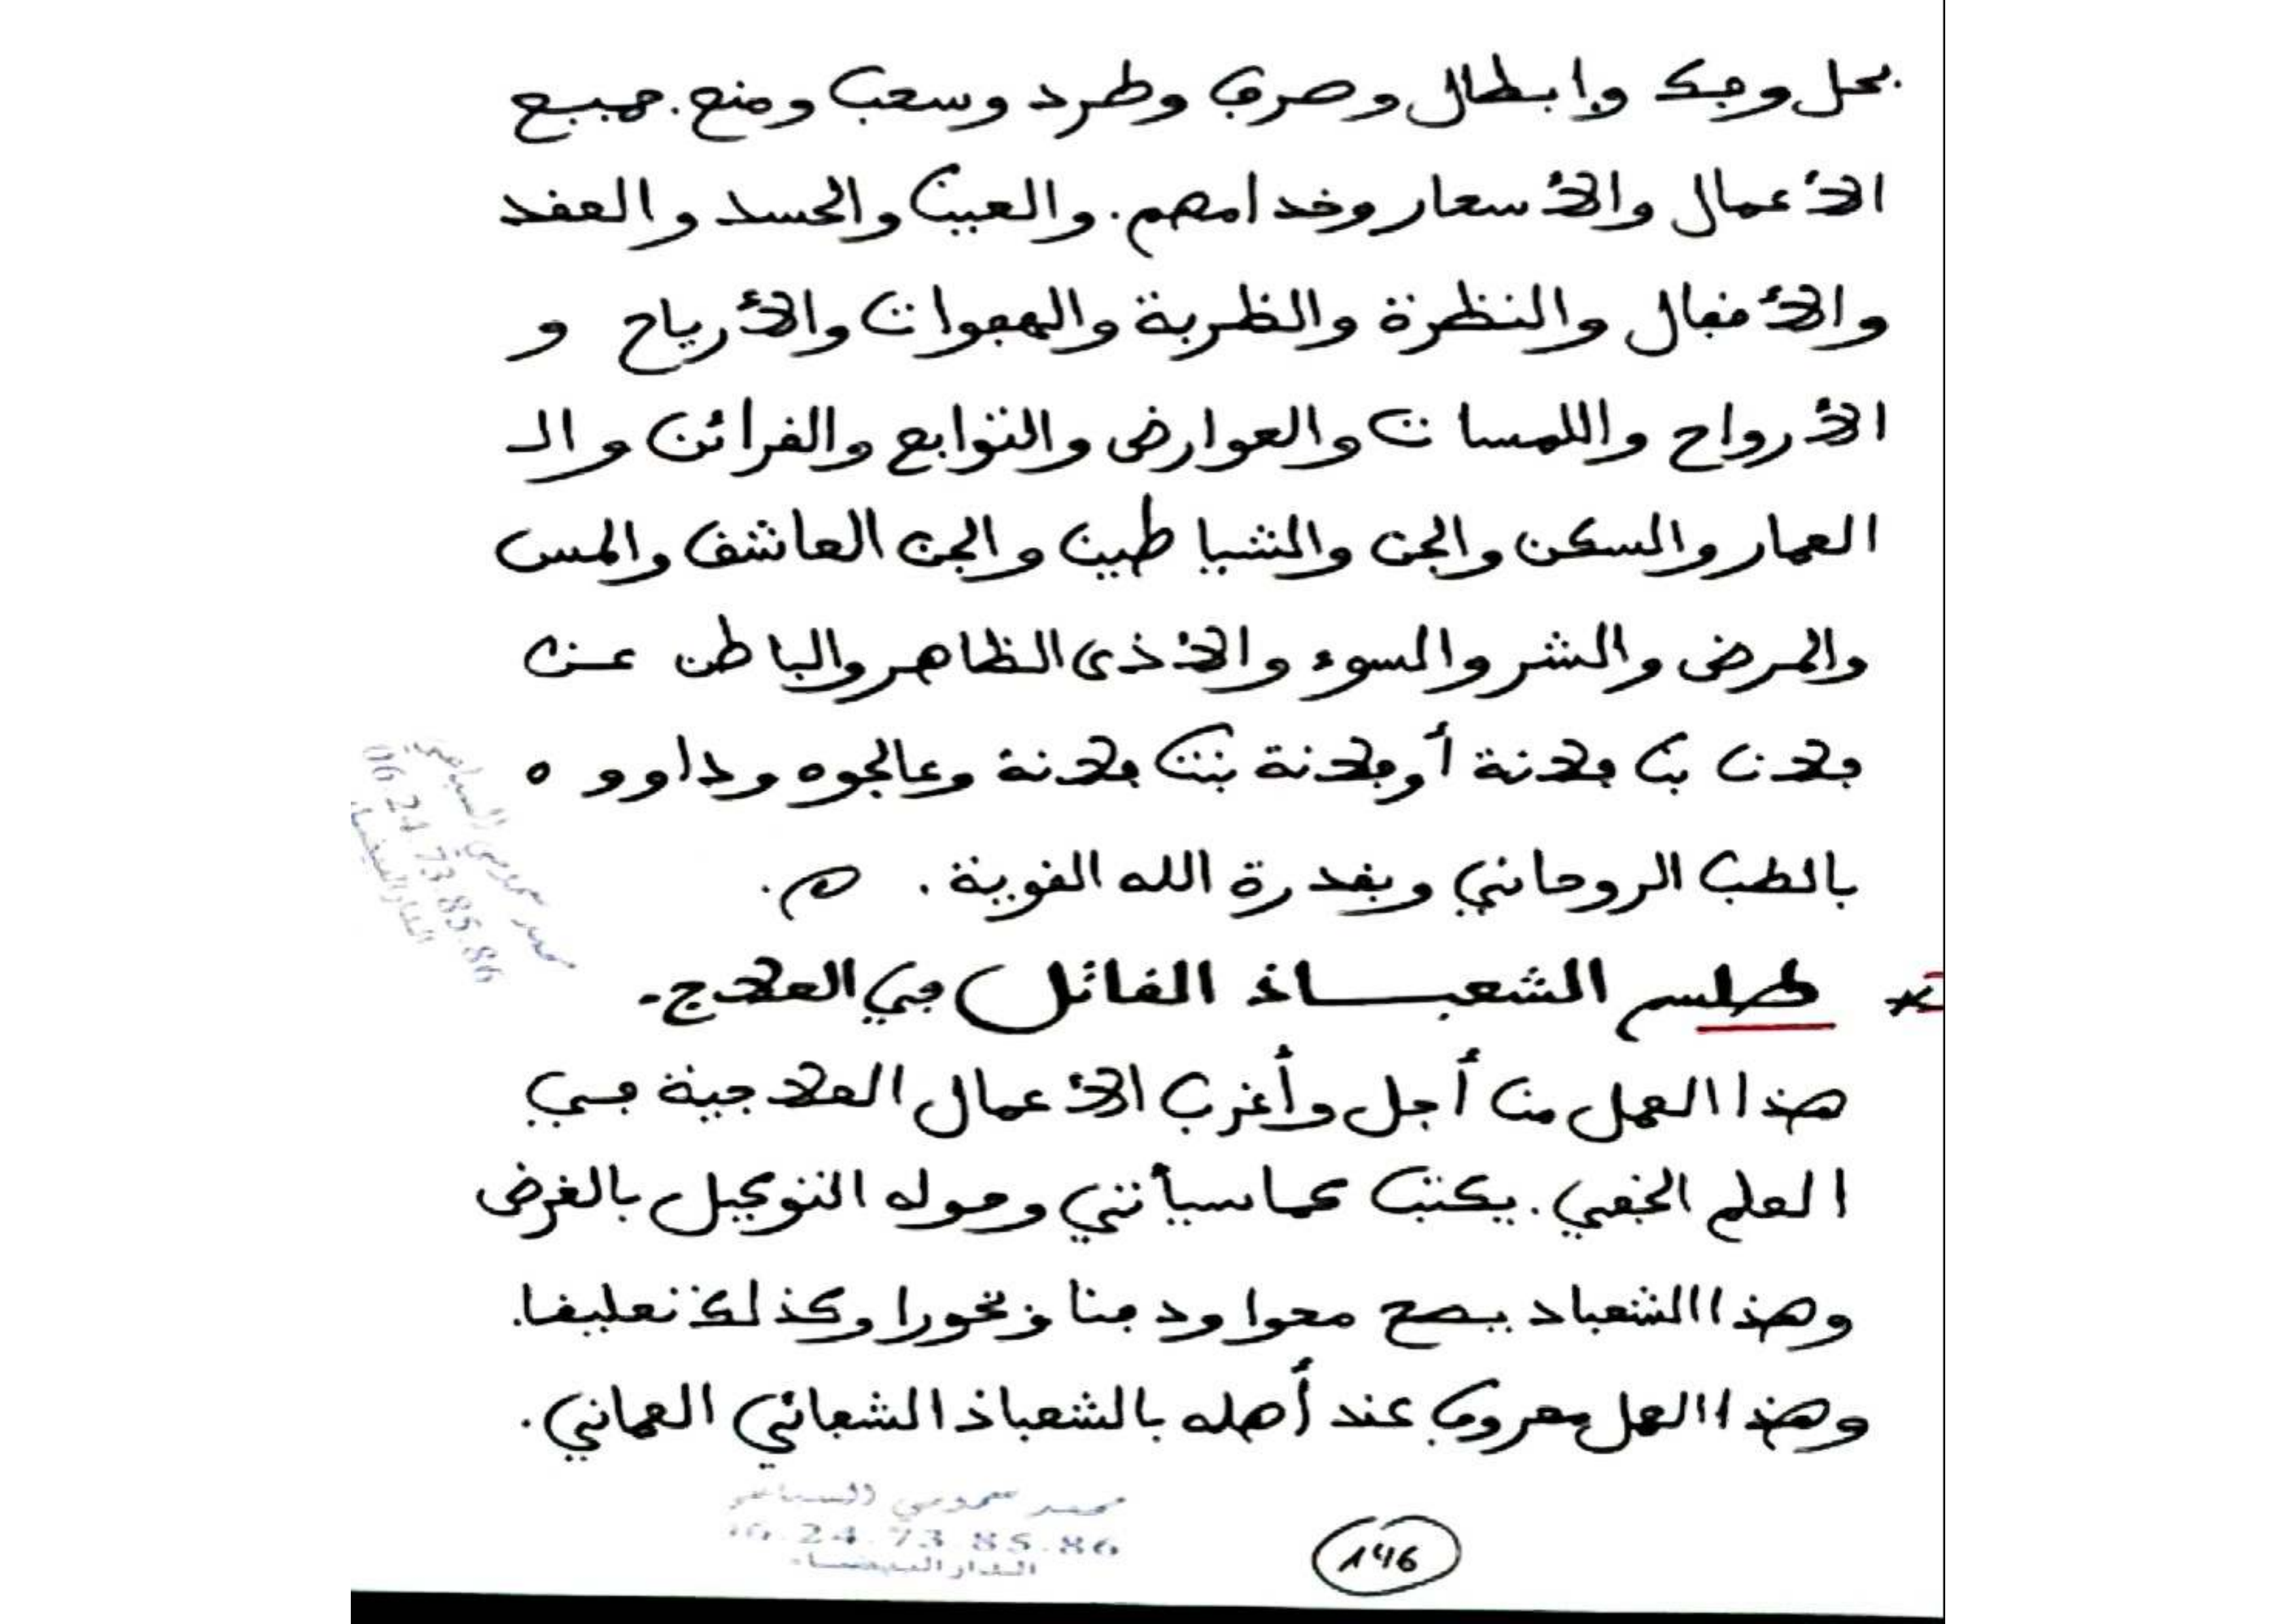 بحل وفك وإبطال وصرف وطرد وسحب ومنع. جميع
الأعمال والأسحار وخدامهم. والعين والحسد والعقد
والأقفال والنظرة والظربة والهفوات والأرياح و
الأرواح واللمسات والعوارض والتوابع والقرائن والـ
العمار والسكن والجن والشياطين والجن العاشق والمس
والمرض والشر والسوء والأذى الظاهر والباطن عن
فلان بن فلانة أو فلانة بنت فلانة وعالجوه وداووه
بالطب الروحاني وبقدرة الله القوية.
* طلسم الشعباذ القاتل في العلاج.
هذا العمل من أجل وأغرب الأعمال العلاجية في
العلم الخفي. يكتب كما سيأتي وحوله التوكيل بالغرض
وهذا الشعباد يصح محوا ودفنا وبخورا وكذلك تعليقا.
وهذا العمل معروف عند أهله بالشعباذ الشعاني العماني.
24.73.85.86
الدار البيضاء
146